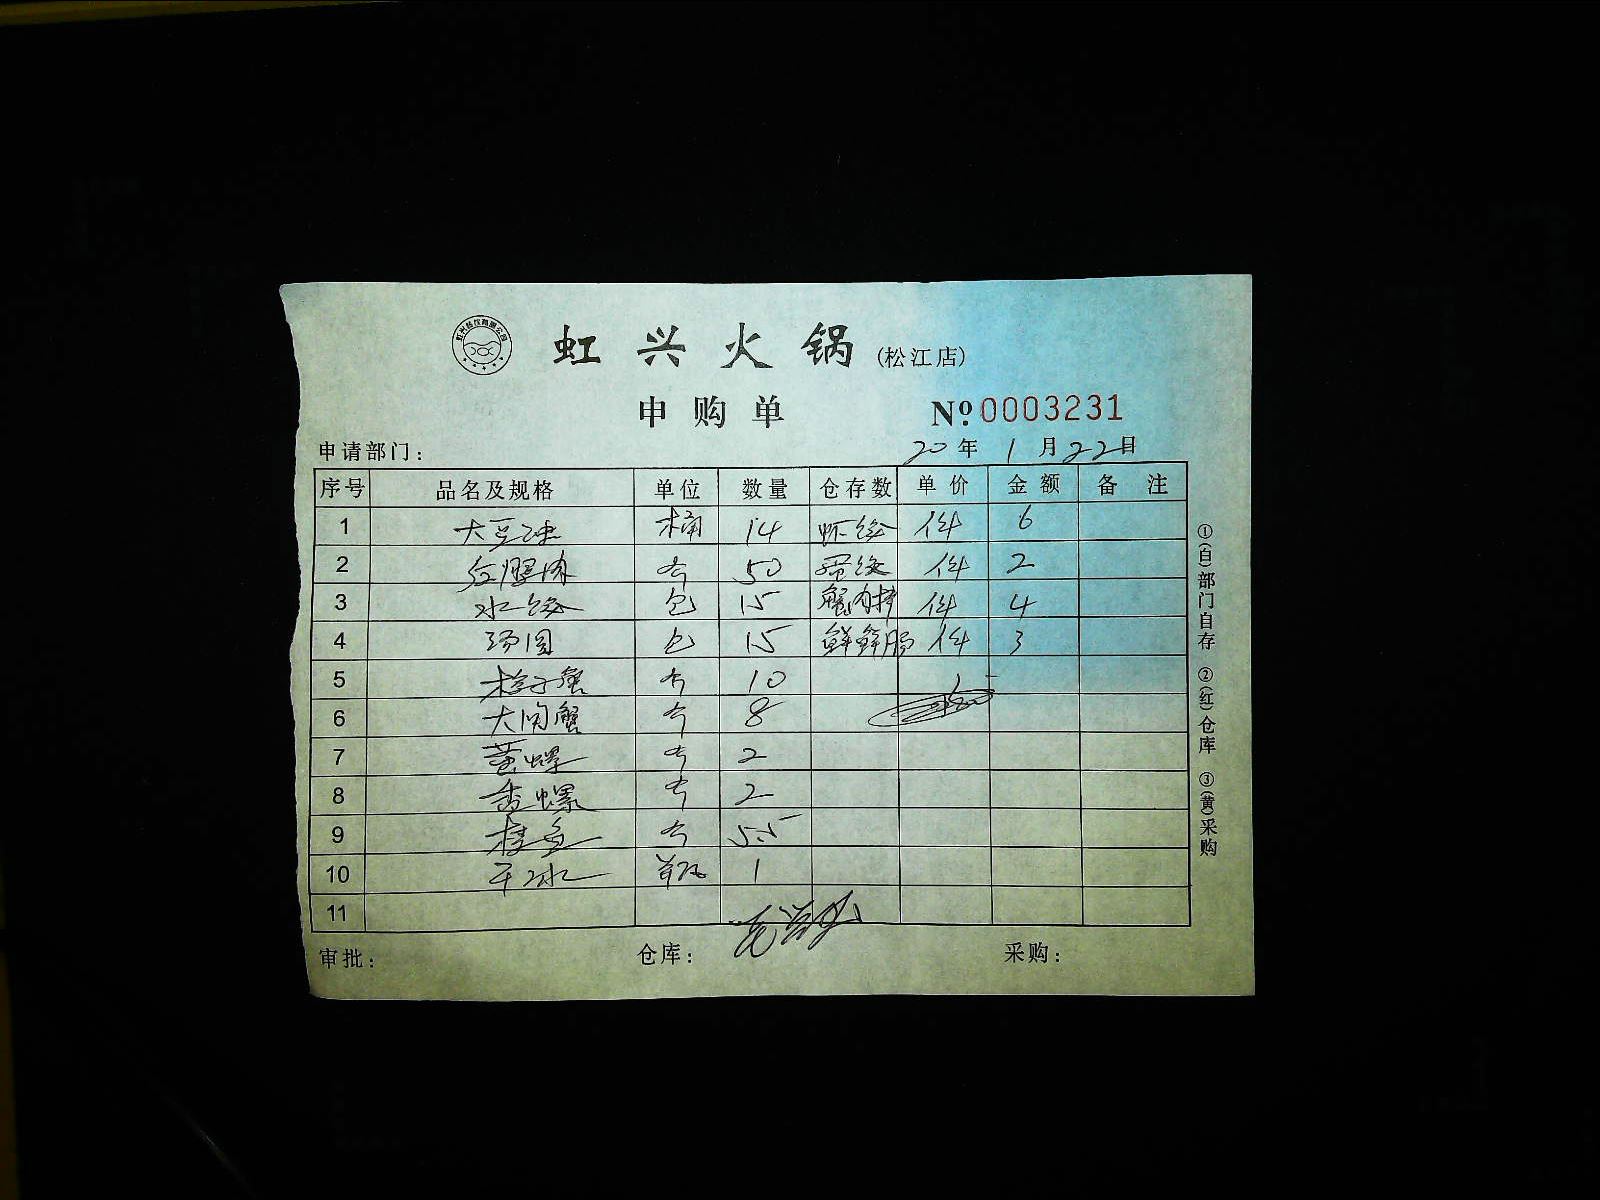 虹兴火锅(松江店)
申购单 Nº.0003231
申请部门: 20年1月22日
序号 品名及规格 单位 数量 仓存数 单价 金额 备注
1 大豆油 桶 14 虾饺 件 6
2 50 蛋饺 件 2
3 水饺 包 15 蟹肉棒 件 4
4 汤圆 包 15 件 3
5 梭子蟹 个 10
6 大闸蟹 个 8
7 黄螺 2
8 香螺 2
9 5.5
10 干冰 1
11
审批: 仓库: 采购:
①(白)部门自存 ②(红)仓库 ③(黄)采购